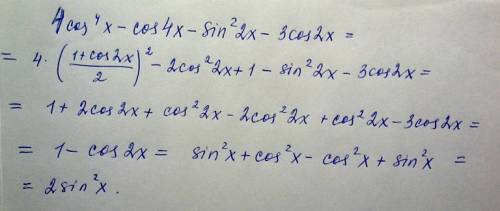 4cos⁴x - cos4x - sin²2x - 3cos2x =
= 4·((1+cos2x)/2)² - 2cos²2x + 1 - sin²2x - 3cos2x =
= 1 + 2cos2x + cos²2x - 2cos²2x + cos²2x - 3cos2x =
= 1 - cos2x = sin²x + cos²x - cos²x + sin²x =
= 2sin²x.